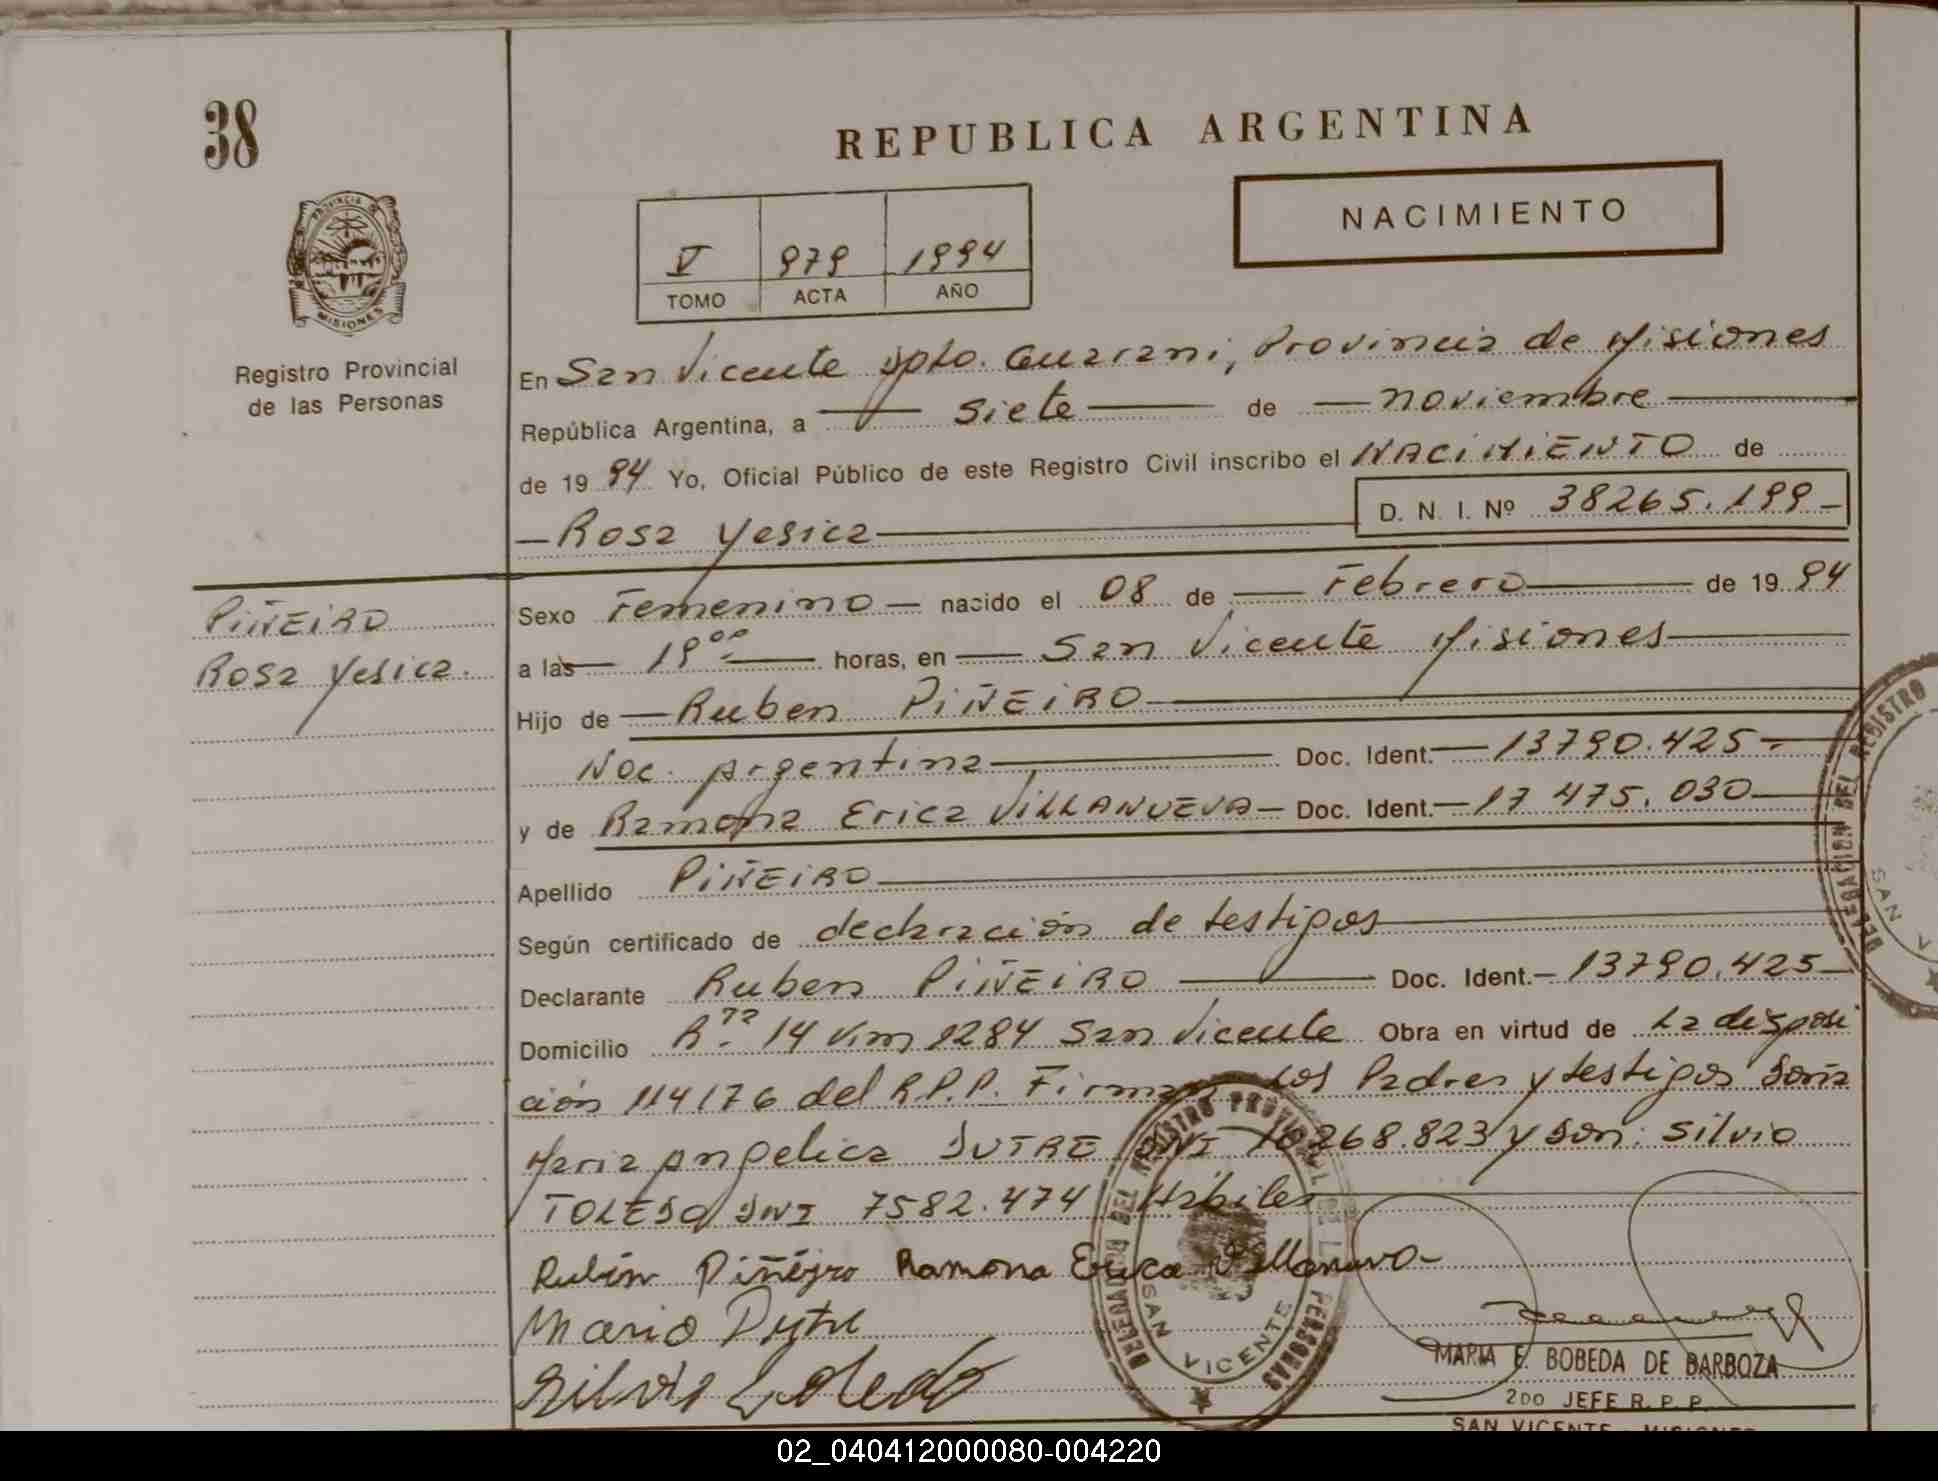 38
REPUBLICA ARGENTINA
NACIMIENTO
V 979 1994
TOMO ACTA AÑO
PROVINCIA DE
MISIONES
Registro Provincial
de las Personas
En San Vicente Dpto. Guarani, Provincia de Misiones
República Argentina, a siete de noviembre
de 19 94 Yo, Oficial Público de este Registro Civil inscribo el NACIMIENTO de
D. N. I. Nº 38265.199-
Rosa Yesica
PIÑEIRO
Rosa Yesica.
Sexo Femenino nacido el 08 de Febrero de 19 94
a las 19⁰⁰ horas, en San Vicente Misiones
Hijo de Ruben PIÑEIRO
Nac. Argentina Doc. Ident. 13790.425
y de Ramona Erica VILLANUEVA Doc. Ident. 17 475.030
Apellido PIÑEIRO
Según certificado de declaración de testigos
Declarante Ruben PIÑEIRO Doc. Ident. 13790.425
Domicilio 14 Km 1284 San Vicente Obra en virtud de La disposi
ción 114/76 del R.P.P. Firman Los Padres y testigos Doña
Maria Angelica DNI 268.823 y Don: Silvio
TOLEDO DNI 7582.474 Hábiles
Rubén Piñeyro Ramona Erica Villanueva
Silvio Toledo
DELEGACION DEL REGISTRO PROVINCIAL DE LAS PERSONAS
SAN VICENTE
DELEGACION DEL REGISTRO
SAN V
MARIA E. BOBEDA DE BARBOZA
2DO JEFE R. P. P.
SAN VICENTE - MISIONES
02_040412000080-004220